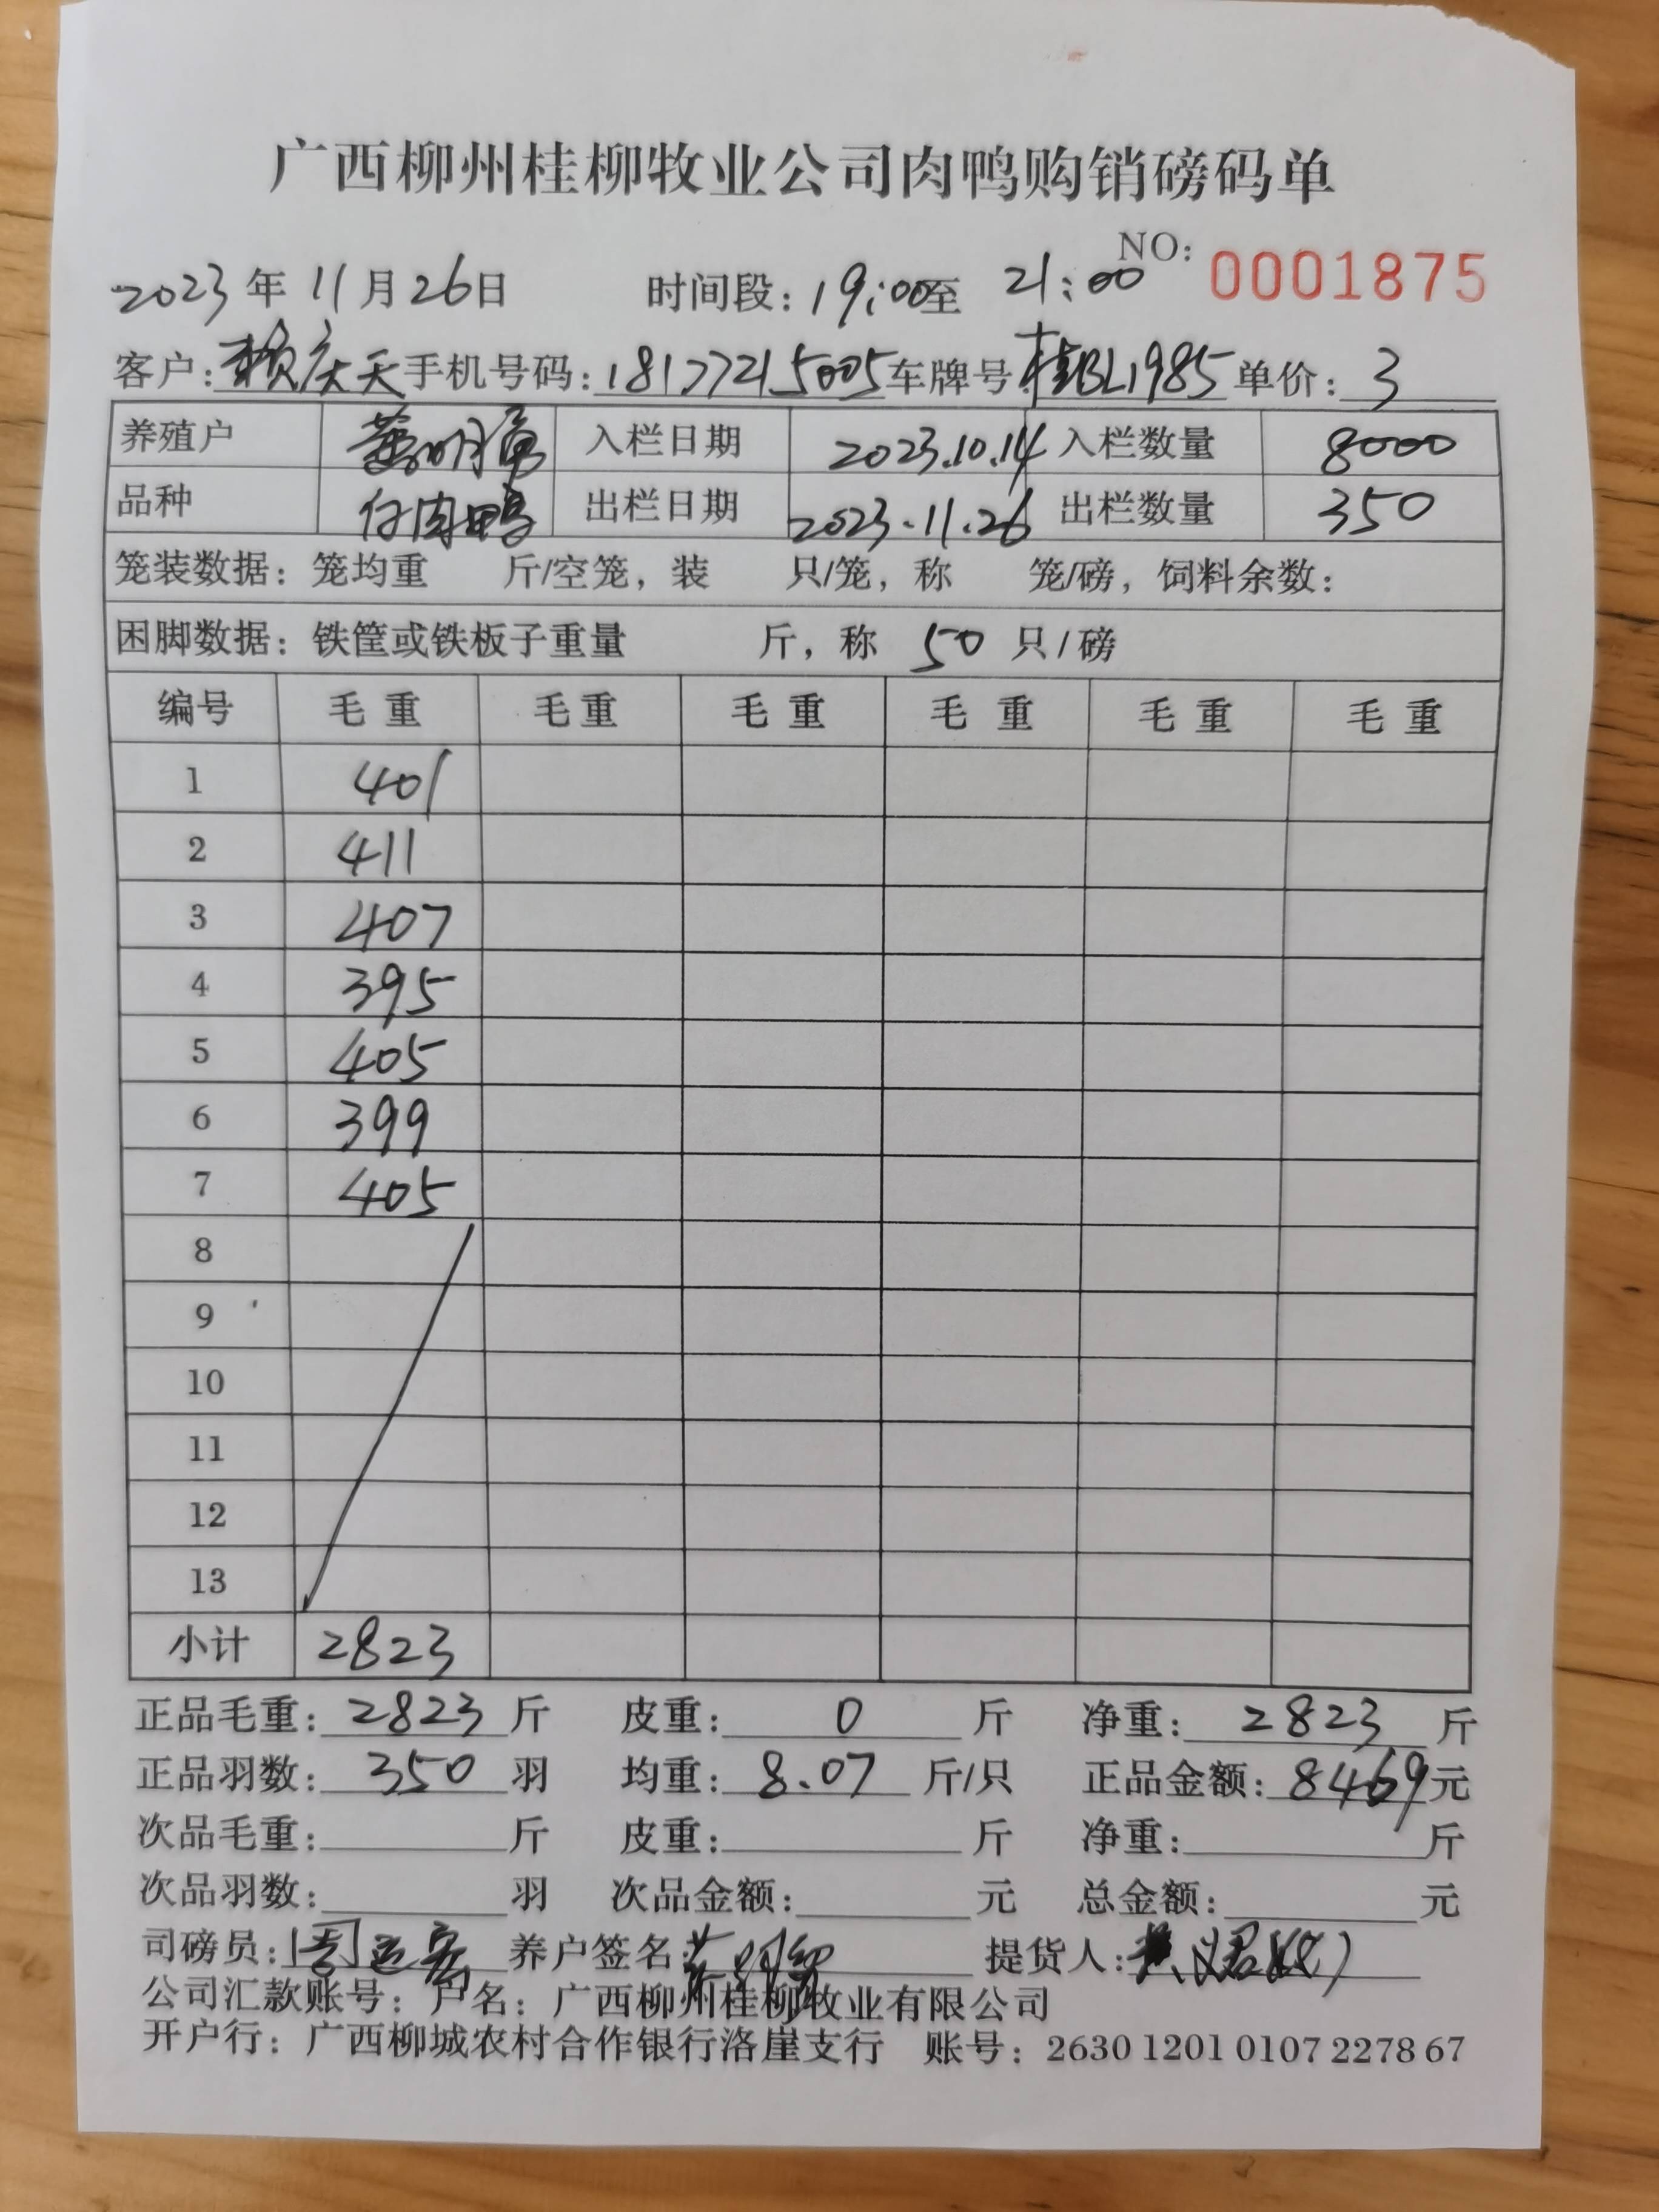 广西柳州桂柳牧业公司肉鸭购销磅码单
NO: 0001875
2023年11月26日 时间段: 19:00至 21:00
客户: 赖庆天 手机号码: 18177215005 车牌号 桂BL1985 单价: 3
养殖户 入栏日期 2023.10.14 入栏数量 8000
品种 仔肉鸭 出栏日期 2023.11.26 出栏数量 350
笼装数据: 笼均重 斤/空笼, 装 只/笼, 称 笼/磅, 饲料余数:
困脚数据: 铁筐或铁板子重量 斤, 称 50 只/磅
编号 毛重 毛重 毛重 毛重 毛重 毛重
1 401
2 411
3 407
4 395
5 405
6 399
7 405
8
9
10
11
12
13
小计 2823
正品毛重: 2823 斤 皮重: 0 斤 净重: 2823 斤
正品羽数: 350 羽 均重: 8.07 斤/只 正品金额: 8469元
次品毛重: 斤 皮重: 斤 净重: 斤
次品羽数: 羽 次品金额: 元 总金额: 元
司磅员: 养户签名: 提货人:
公司汇款账号: 户名: 广西柳州桂柳牧业有限公司
开户行: 广西柳城农村合作银行洛崖支行 账号: 2630 1201 0107 2278 67